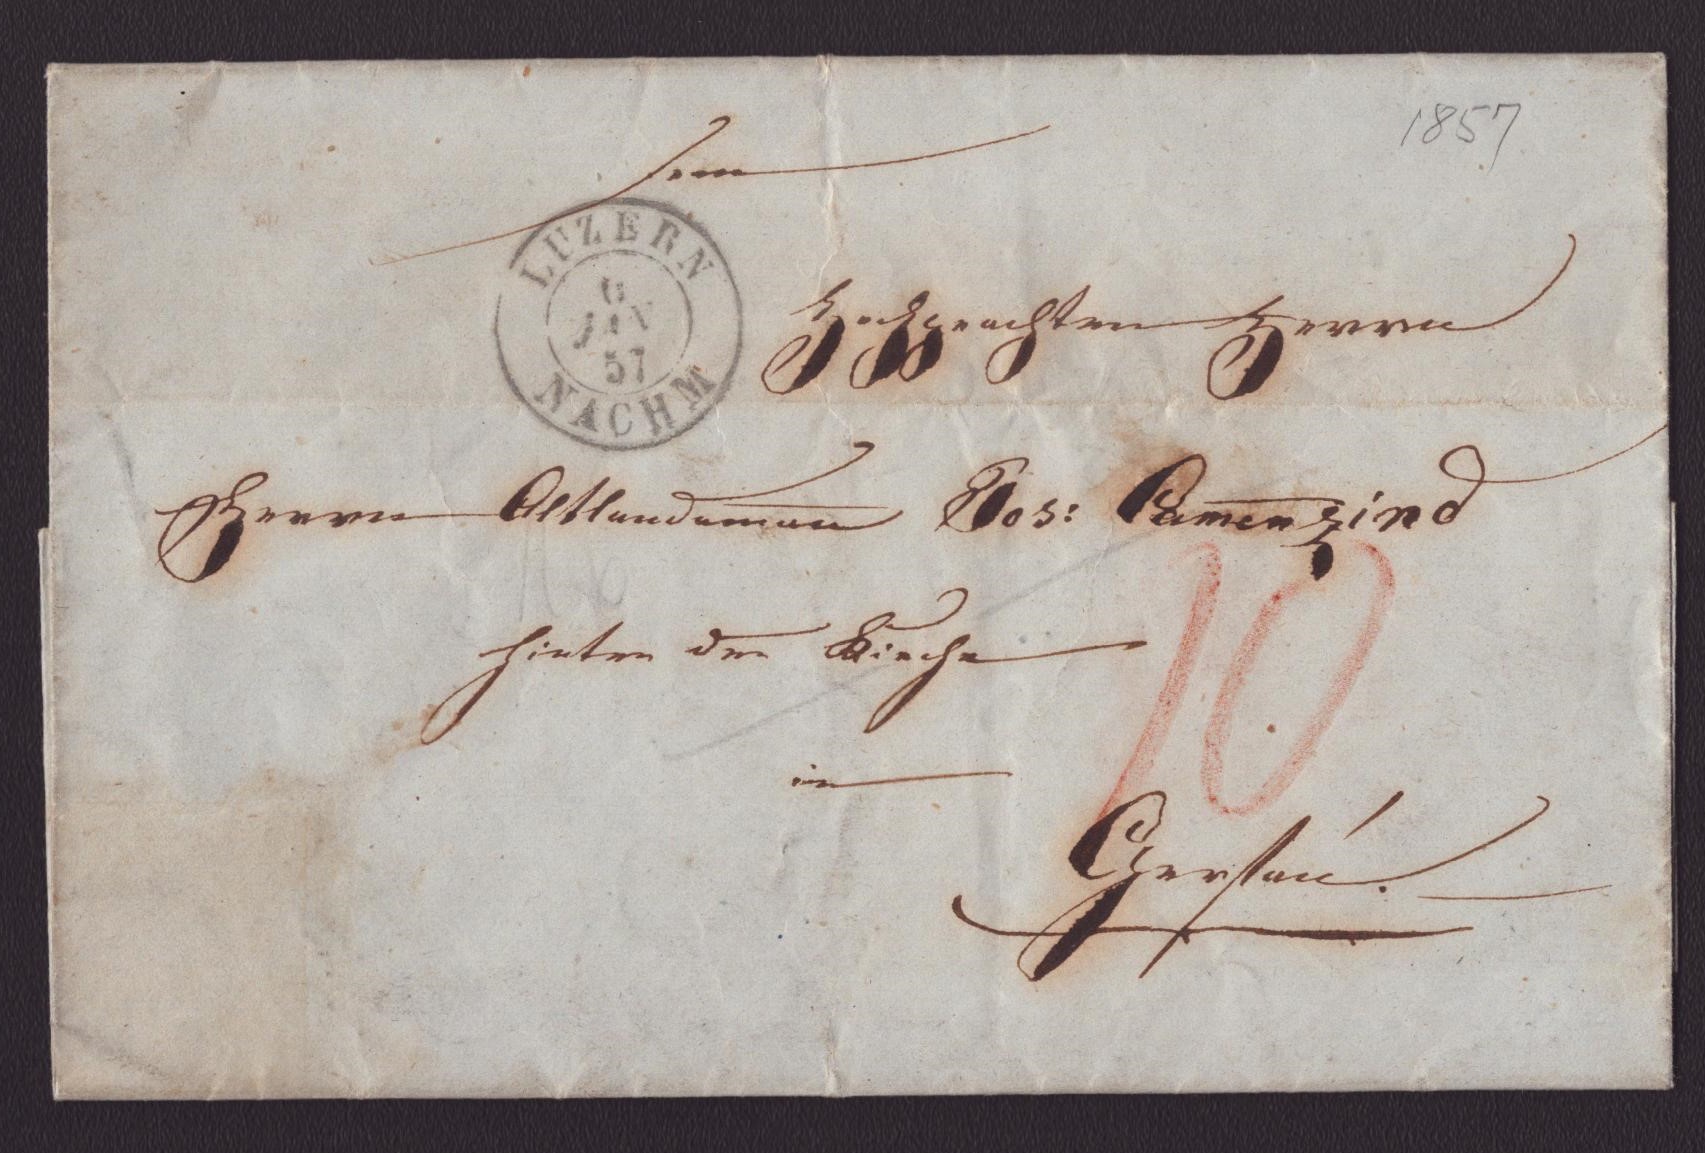 1857
Dem
LUZERN
6
JAN
57
NACHM
Hochgeachten Herrn
Herrn Altlandaman Jos: Camenzind
hinter der Kirche
10
in
Gersau.